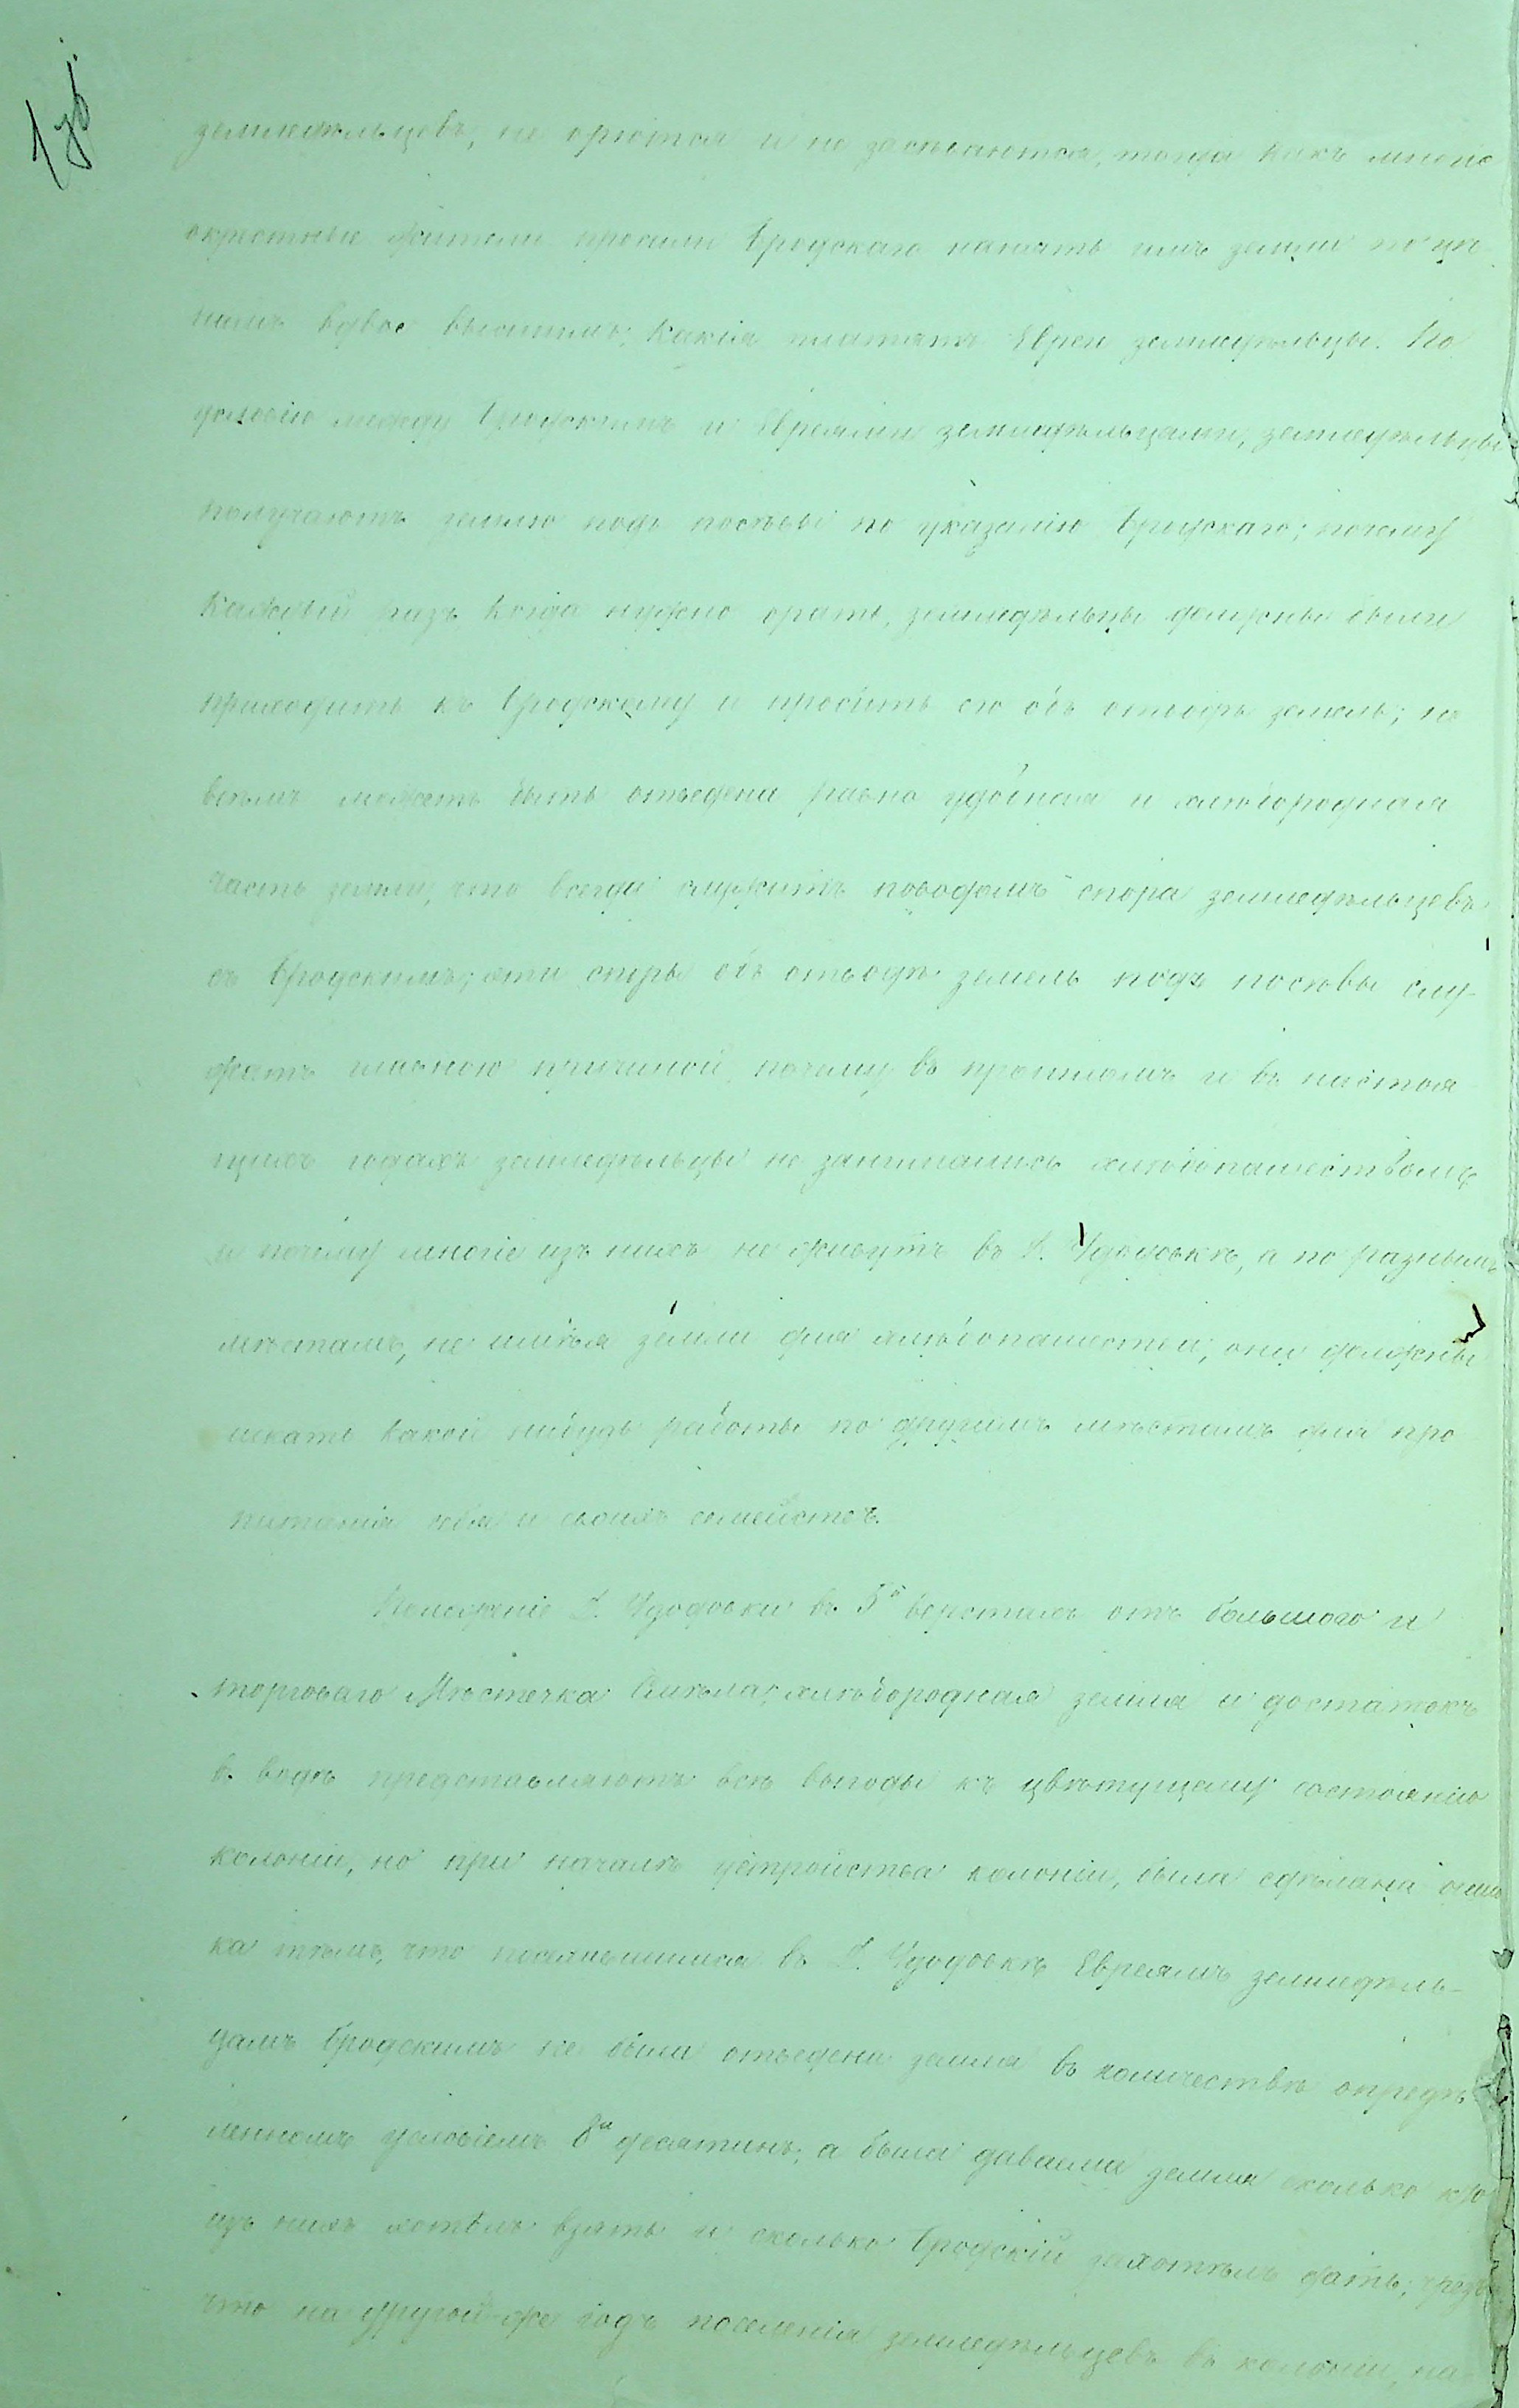 земледѣльцевъ, не орются и не засѣваются, тогда какъ многіе
окрестные жители просили Бродскаго нанять имъ земли по цѣ
намъ вдвое высшимъ, какія платятъ Евреи земледѣльцы. По
условію между Бродскимъ и Евреями земледѣльцами, земледѣльцы
получаютъ землю подъ посѣвы по указанію Бродскаго; почему
каждый разъ когда нужно орать, земледѣльцы должны были
приходить къ Бродскому и просить его объ отводѣ земель; не
всѣмъ можетъ быть отведена равно удобная и хлѣбородная
часть земли, что всегда служитъ поводомъ спора земледѣльцевъ
съ Бродскимъ; эти споры объ отводѣ земель подъ посѣвы слу-
жатъ главною причиной, почему въ прошломъ и въ настоя
щихъ годахъ земледѣльцы не занимались хлѣбопашествомъ
и почему многіе изъ нихъ не живутъ въ д. а по разнымъ
мѣстамъ, не имѣя земли для хлѣбопашества, они должны
искать какой нибудь работы по другимъ мѣстамъ для про
питанія себя и своихъ семействъ.
Положеніе д. въ 5ти верстахъ отъ большого и
торговаго Мѣстечка хлѣбородная земля и достатокъ
въ водѣ представляютъ всѣ выгоды къ цвѣтущему состоянію
колоніи, но при началѣ устройства колоніи, была сдѣлана ошиб
ка тѣмъ, что поселившимся въ д. Евреямъ земледѣль-
цамъ Бродскимъ не была отведена земля въ количествѣ опредѣ
ленномъ условіемъ десятинъ, а была даваема земля сколько кто
изъ нихъ хотѣлъ взять и сколько Бродскій захотѣлъ дать;
что на другой-же годъ поселенія земледѣльцевъ въ колоніи, на-